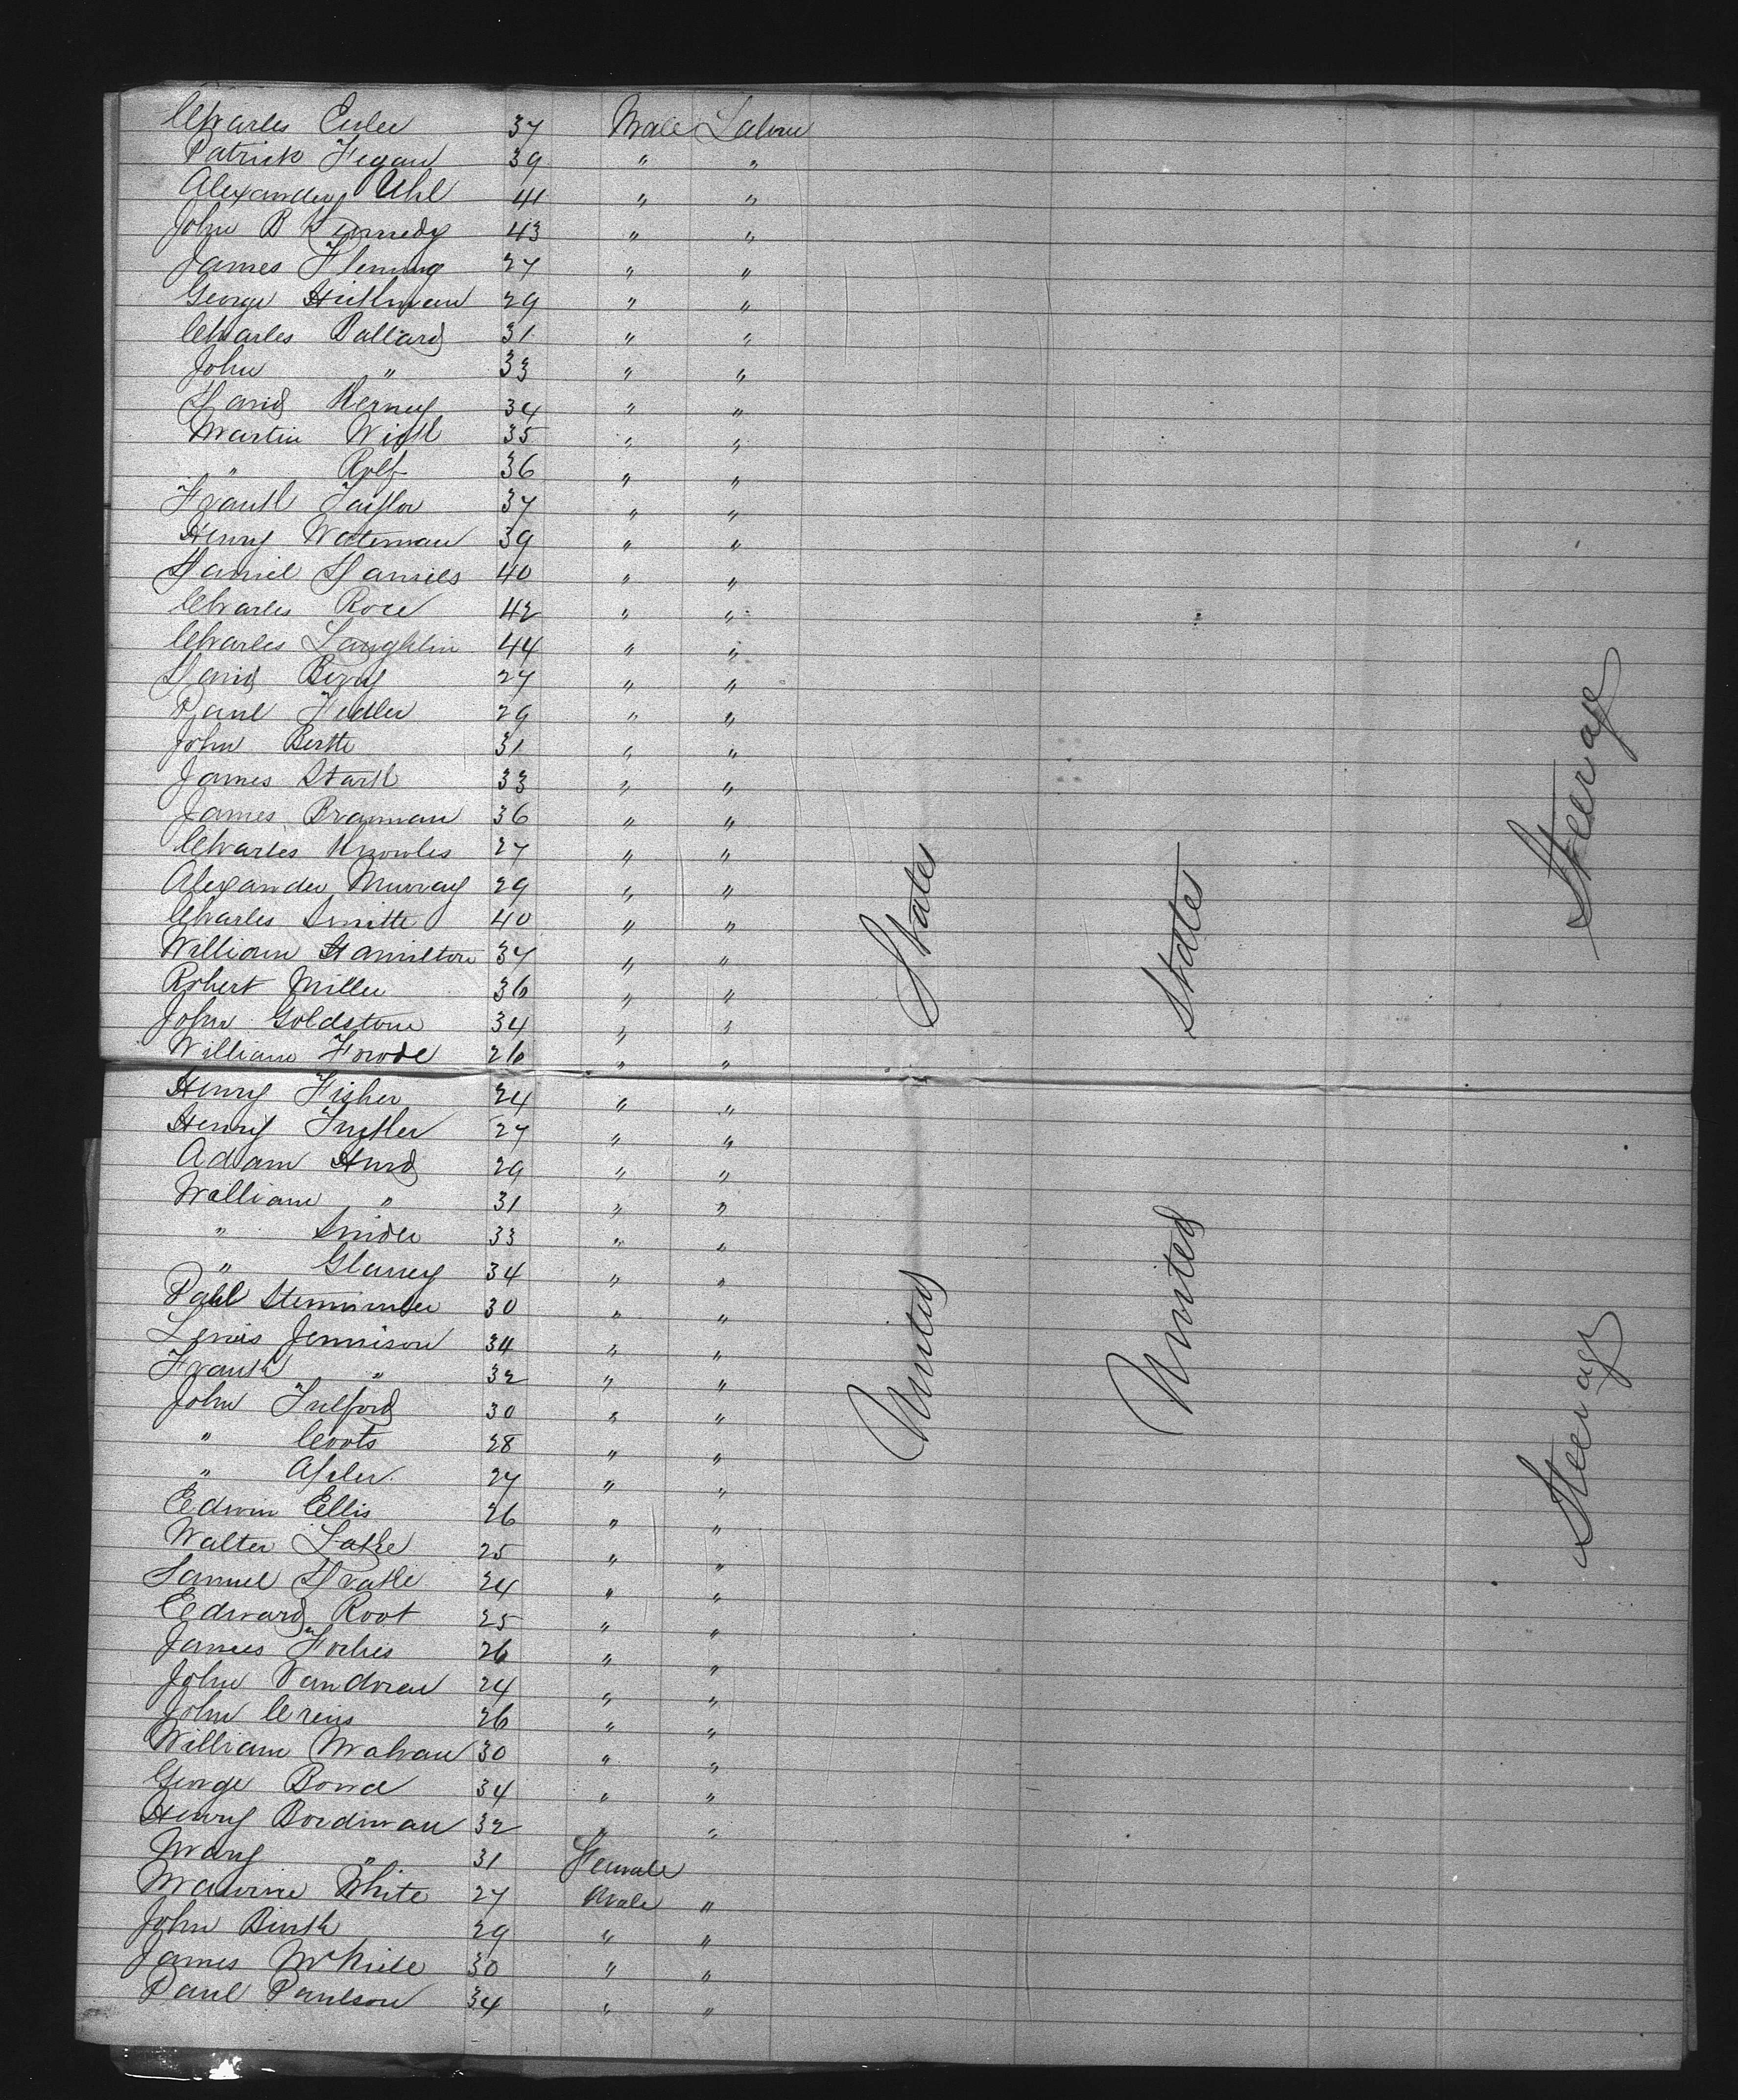 Charles Euler 37 Male Labour
Patrick Fegan 39 " "
Alexander Uhl 41 " "
John B Kennedy 43 " "
James Fleming 27 " "
George Huffman 29 " "
Charles Ballard 31 " "
John " 33 " "
David Kerney 34 " "
Martin 35 " "
" Rolf 36 " "
Frank Taylor 37 " "
Henry Waterman 39 " "
Daniel Daniels 40 " "
Charles Roce 42 " "
Charles Laughlin 44 " "
David Berry 27 " "
Paul Fidler 29 " "
John Bertte 31 " "
James Stark 33 " "
James Braman 36 " "
Charles Knowles 27 " "
Alexander Murray 29 " "
Charles Smith 40 " "
William Hamilton 37 " "
Robert Miller 36 " "
John Goldstone 34 " "
William Frode 26 " "
Henry Fisher 24 " "
Henry 27 " "
Adam Hurd 29 " "
William " 31 " "
" Snider 33 " "
" Glancy 34 " "
Pahl 30 " "
Lewis Jennison 34 " "
Frank " 32 " "
John Fulford 30 " "
" Coots 28 " "
" 27 " "
Edwin Ellis 26 " "
Walter Lake 25 " "
Samuel Drake 24 " "
Edward Root 25 " "
James Forbes 26 " "
John Vandoren 24 " "
John 26 " "
William Mahan 30 " "
George Bond 34 " "
Henry Bordman 32 " "
Mary " 31 Female
White 27 Male "
John Burk 29 " "
James McKniele 30 " "
Paul Paulson 34 " "
United States
United States
Steerage
Steerage